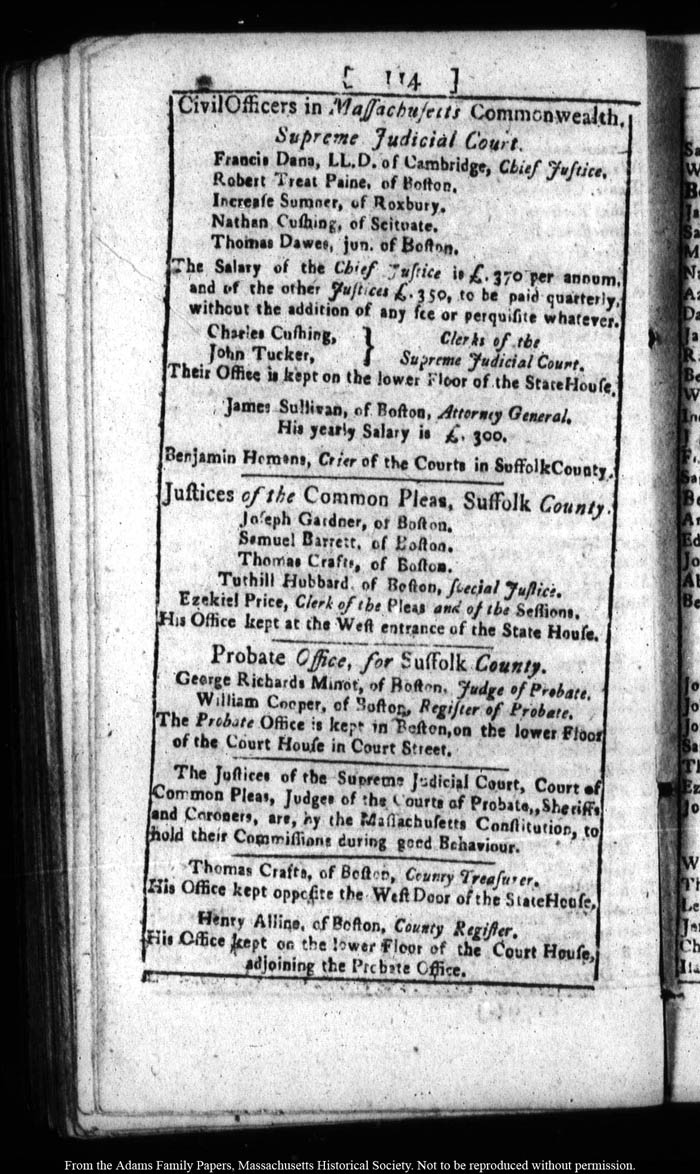 [ 114 ]
Civil Officers in Maſſachuſetts Commonwealth.
Supreme Judicial Court.
Francis Dana, LL.D. of Cambridge, Chief Juſtice.
Robert Treat Paine, of Boſton.
Increaſe Sumner, of Roxbury.
Nathan Cuſhing, of Scituate.
Thomas Dawes, jun. of Boſton.
The Salary of the Chief Juſtice is £.370 per annum,
and of the other Juſtices £.350, to be paid quarterly,
without the addition of any fee or perquiſite whatever.
Charles Cuſhing, } Clerks of the
John Tucker, Supreme Judicial Court.
Their Office is kept on the lower Floor of the State Houſe.
James Sullivan, of Boſton, Attorney General.
His yearly Salary is £. 300.
Benjamin Homans, Crier of the Courts in Suffolk County.
Juſtices of the Common Pleas, Suffolk County.
Joſeph Gardner, of Boſton.
Samuel Barrett, of Boſton.
Thomas Crafts, of Boſton.
Tuthill Hubbard, of Boſton, ſpecial Juſtice.
Ezekiel Price, Clerk of the Pleas and of the Seſſions.
His Office kept at the Weſt entrance of the State Houſe.
Probate Office, for Suffolk County.
George Richards Minot, of Boſton, Judge of Probate.
William Cooper, of Boſton, Regiſter of Probate.
The Probate Office is kept in Boſton, on the lower Floor
of the Court Houſe in Court Street.
The Juſtices of the Supreme Judicial Court, Court of
Common Pleas, Judges of the Courts of Probate,, Sheriffs
and Coroners, are, by the Maſſachuſetts Conſtitution, to
hold their Commiſſions during good Behaviour.
Thomas Crafts, of Boſton, County Treaſurer.
His Office kept oppoſite the Weſt Door of the State Houſe,
Henry Alline, of Boſton, County Regiſter.
His Office kept on the lower Floor of the Court Houſe,
adjoining the Probate Office.
From the Adams Family Papers, Massachusetts Historical Society. Not to be reproduced without permission.